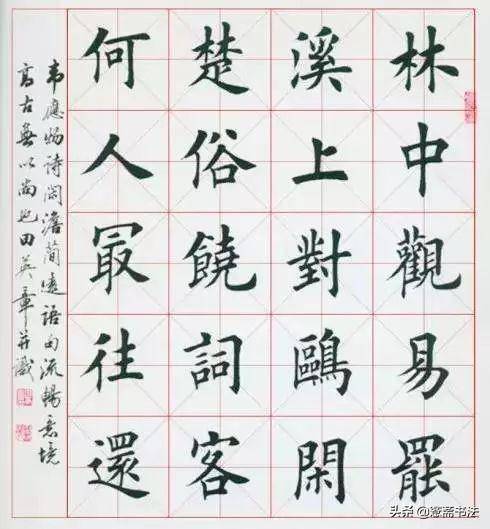 林中觀易罷
溪上對鷗閑
楚俗饒詞客
何人最往還
韦應物诗闲澹簡遠语句流暢意境
高古無以尚也田英章并識
头条@懋斋书法